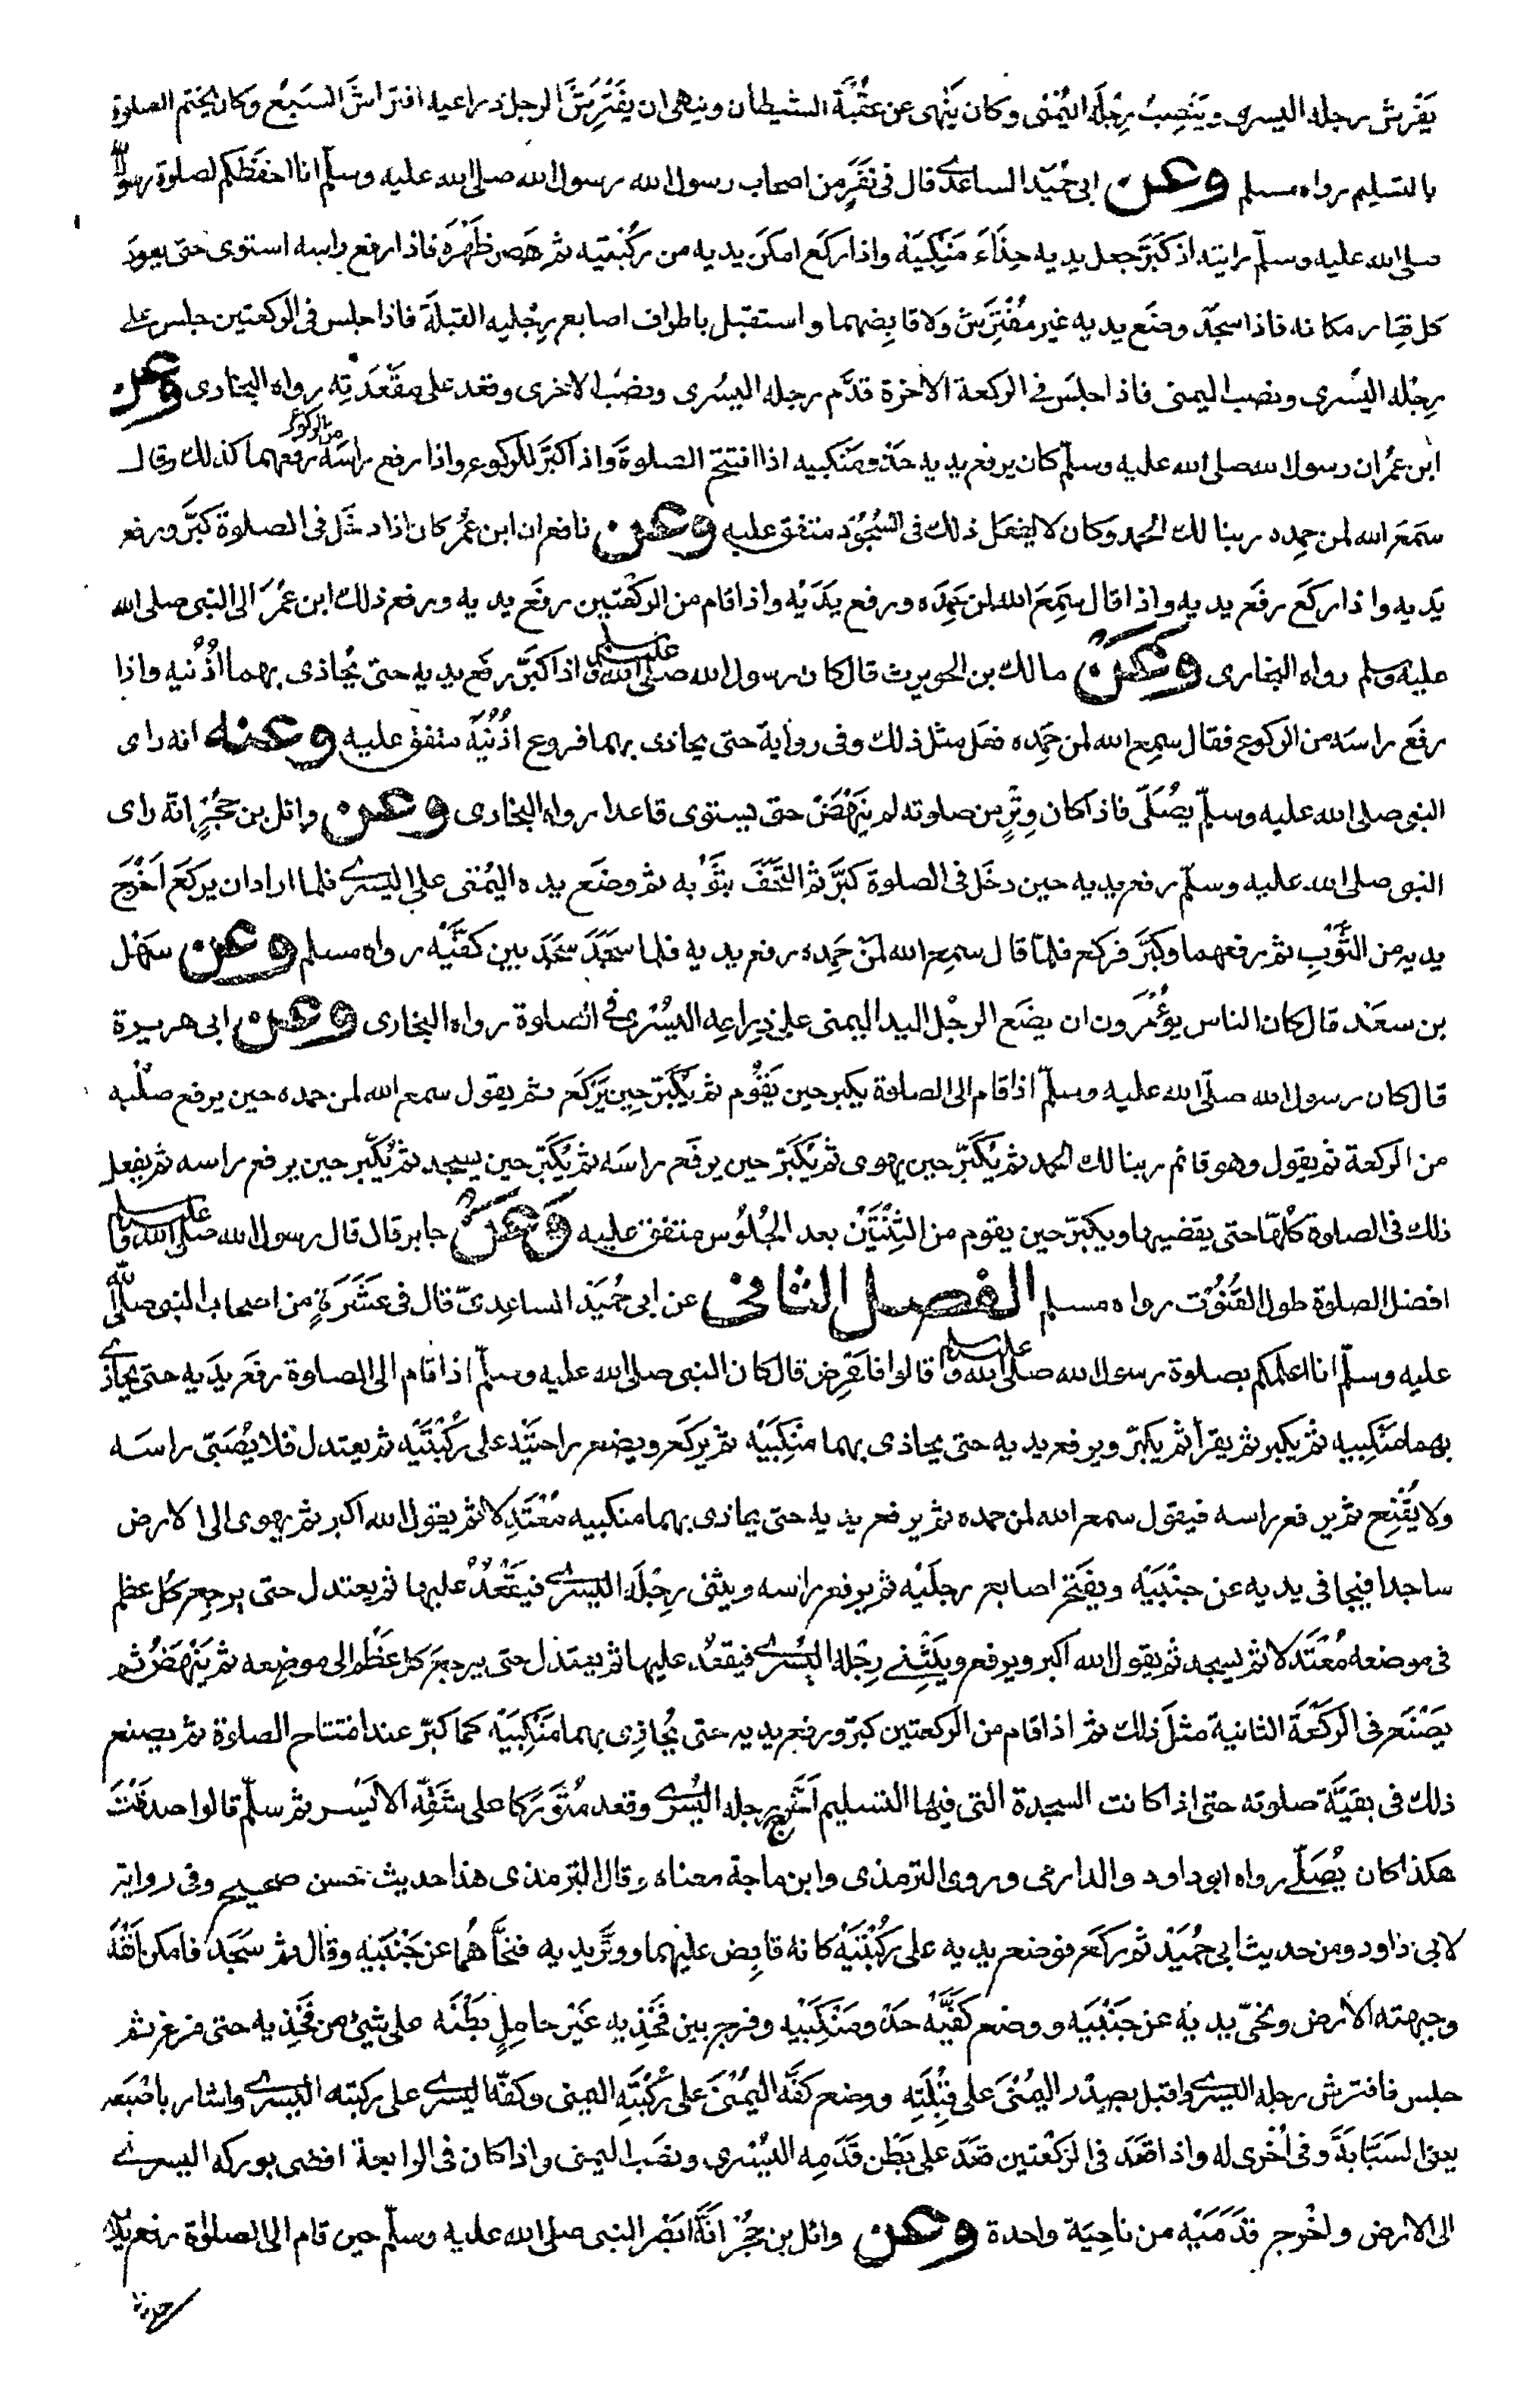 يَفْرِش رجله اليسرى ويَنْصِبُ رِجْلَه اليُمْنى وكان يَنْهى عن عُقْبَة الشيطان وينهى ان يَفْتَرِشَ الرجل ذراعيه افتراشَ السَبُع وكان يختم الصلوة
بالتسليم رواه مسلم وعن ابى حُمَيْد الساعدي قال فى نَفَرٍ من اصحاب رسول الله رسول الله صلى الله عليه وسلّم انا احفَظُكم لصلوة رسول الله
صلى الله عليه وسلّم رايته اذ كَبَّرَ جعل يديه حِذَاءَ مَنْكِبَيْه واذا ركَع امكَن يديه من رُكْبَتيه ثم هَصَر ظَهْرَه فاذا رفع راسه استوى حتى يعودَ
كل فِقار مكانه فاذا سجَد وضَع يديه غير مُفْتَرِشٍ ولا قابِضِهما واستقبل باطراف اصابع رِجْليه القبلَة فاذا جلس فى الركعتين جلس على
رِجْله اليُسْرى ونصب اليمنى فاذا جلَس فى الركعة الاخرة قدَّم رجله اليُسْرى ونصَب الاخرى وقعد على مَقْعَدَتِه رواه البخارى وعن
ابن عُمر ان رسول الله صلى الله عليه وسلّم كان يرفع يديه حَذْو مَنْكبيه اذا افتتح الصلوةَ واذا كبَّر للركوع واذا رفع راسَه من الركوع رفعهما كذلك وقال
سَمعَ الله لمن حمِده ربنا لك الحمد وكان لا يفعَل ذلك فى السُجُوْد متفق عليه وعن نافع ان ابن عُمر كان اذا دخَل فى الصلوة كبَّر ورفع
يَديه واذا ركَع رفَع يديه واذا قال سَمِعَ الله لمن حَمِدَه ورفع يدَيْه واذا قام من الركْعتين رفَع يديه ورفع ذلك ابن عُمَرَ الى النبى صلى الله
عليه وسلم رواه البخارى وعَنْ مالك بن الحويرث قال كان رسول الله صلى الله عليه وسلم اذا كبَّر رفَع يديه حتى يُحاذى بهما اُذُنيه واذا
رفَع راسَه من الركوع فقال سمِع الله لمن حَمِده فعَل مثل ذلك وفى رواية حتى يحاذى بهما فروع اُذُنَيْه متفق عليه وعنه انه راى
النبى صلى الله عليه وسلّم يُصَلّى فاذا كان وِتْرٍ من صلوته لم يَنْهَضْ حتى يستوى قاعدا رواه البخارى وعن وائل بن حُجْرٍ انّه راى
النبى صلى الله عليه وسلّم رفع يديه حين دخَل فى الصلوة كبَّر ثم التَحَفَ بثَوْبه ثم وضَع يده اليُمْنى على اليسرے فلما اراد ان يركَعَ اَخْرَج
يديه من الثَّوْبِ ثم رفَعهما وكَبَّر فركع فلمّا قال سمِع الله لمَنْ حَمِده رفع يديه فلما سَجَدَ سَجَدَ بين كفَّيْه رواه مسلم وعن سَهْل
بن سعْد قال كان الناس يُؤْمَرون ان يضَع الرجُل اليد اليمنى على ذِراعِه اليُسْرى فى الصلوة رواه البخارى وعن ابى هريرة
قال كان رسول الله صلّى الله عليه وسلّم اذا قام الى الصلوة يكبر حين يَقُوْم ثم يُكَبّر حِين يَرْكَع ثم يقول سمع الله لمن حمده حين يرفع صلْبه
من الركعة ثم يقول وهو قائم ربنا لك الحمد ثم يُكَبّرُ حين يهوى ثم يُكَبّرُ حين يرفَع راسَه ثم يُكَبّر حين يسجد ثم يُكبّر حين يرفع راسه ثم يفعل
ذلك فى الصلوة كُلّها حتى يقضيها ويكبرّ حين يقوم من الثِنْتَيْن بعد الجُلُوْس متفق عليه وَعَنْ جابر قال قال رسول الله صلى الله عليه وسلم
افضل الصلوة طول القُنُوْت رواه مسلم الفصل الثانى عن ابى حُمَيْد الساعِدىّ قال فى عَشَرَةٍ من اصحاب النبى صلى الله
عليه وسلّم انا اعلمكم بصلوة رسول الله صلى الله عليه وسلم قالوا فاعْرِض قال كان النبى صلى الله عليه وسلّم اذا قام الى الصلوة رفَع يدَيه حتى يحاذى
بهما مَنْكِبيه ثم يكبر ثم يقرأ ثم يكبّر ويرفع يديه حتى يحاذى بهما مَنْكِبَيْه ثم يركَع ويضع راحتَيْه على رُكْبَتَيْه ثم يعتدل فلا يُصَبّى راسَه
ولا يُقْنِع ثم يرفع راسه فيقول سمع الله لمن حمده ثم يرفع يديه حتى يحاذى بهما منكبيه مُعْتَدِلا ثم يقول الله اكبر ثم يهوى الى الارض
ساجدا فيجافى يديه عن جنْبَيْه ويفتح اصابع رجلَيْه ثم يرفع راسه ويثنى رِجْلَه اليُسْرى فيَقْعُدُ عليها ثم يعتدل حتى يرجع كل عظم
فى موضعه مُعْتَدِلا ثم يسجد ثم يقول الله اكبر ويرفع ويَثْنِے رِجْله اليُسْرے فيقعُد عليها ثم يعتدل حتى يرجعَ كل عَظْم الى موضِعه ثم يَنْهَضُ ثم
يَصْنَع فى الركْعَة الثانية مثلَ ذلك ثم اذا قام من الركعتين كبّر ورفع يديه حتى يُحاذِى بهما مَنْكِبَيْه كما كبّر عند افتتاح الصلوة ثم يصنع
ذلك فى بقيَّة صلوته حتى اذا كانت السجدة التى فيها التسليم اَخْرج رجله اليُسْرے وقعد مُتَوَرّكا على شِقِّه الايْسر ثم سلّم قالوا صدقْتَ
هكذا كان يُصَلّے رواه ابو داود والدارمى وروى الترمذى وابن ماجة معناه وقال الترمذى هذا حديث حسن صحيح وفى رواية
لابى داود ومن حديث ابى حُمَيْد ثم ركَع فوضع يديه على رُكْبَتَيْه كانه قابِض عليهما ووَتَّر يديه فنحّاهُما عن جَنْبَيْه وقال ثم سَجَد فامكن اَنْفَه
وجبهته الارض ونحّى يديه عن جَنْبَيه ووضع كَفَّيْه حَذْو مَنْكِبَيْه وفرج بين فَخِذيه غَيْر حامِلٍ بَطْنَه على شئ من فَخِذيه حتى فرغ ثم
جلس فافترش رجله اليسرے واقبل بصدْر اليُمْنَى على قِبْلَتِه ووضع كفَّه اليُمْنَى على رُكْبَتِه اليمنى وكفّه اليسرے على ركبته اليسرے واشار باصْبَعه
يعنى السَبَّابَةَ وفى اُخْرى له واذا قعَد فى الركْعَتين قعَدَ على بَطْن قَدَمِه اليُسْرى ونصَب اليمنى واذا كان فى الرابعة افضى بوركه اليسرے
الى الارض واخْرج قدَمَيْه من ناحِيَة واحدة وعن وائل بن حُجْر انَّه ابْصَر النبى صلى الله عليه وسلّم حين قام الى الصلوٰة رفع يديه